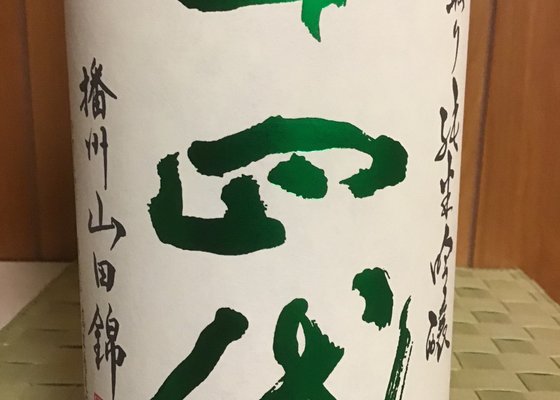 り 純米吟醸
四代
播州山田錦